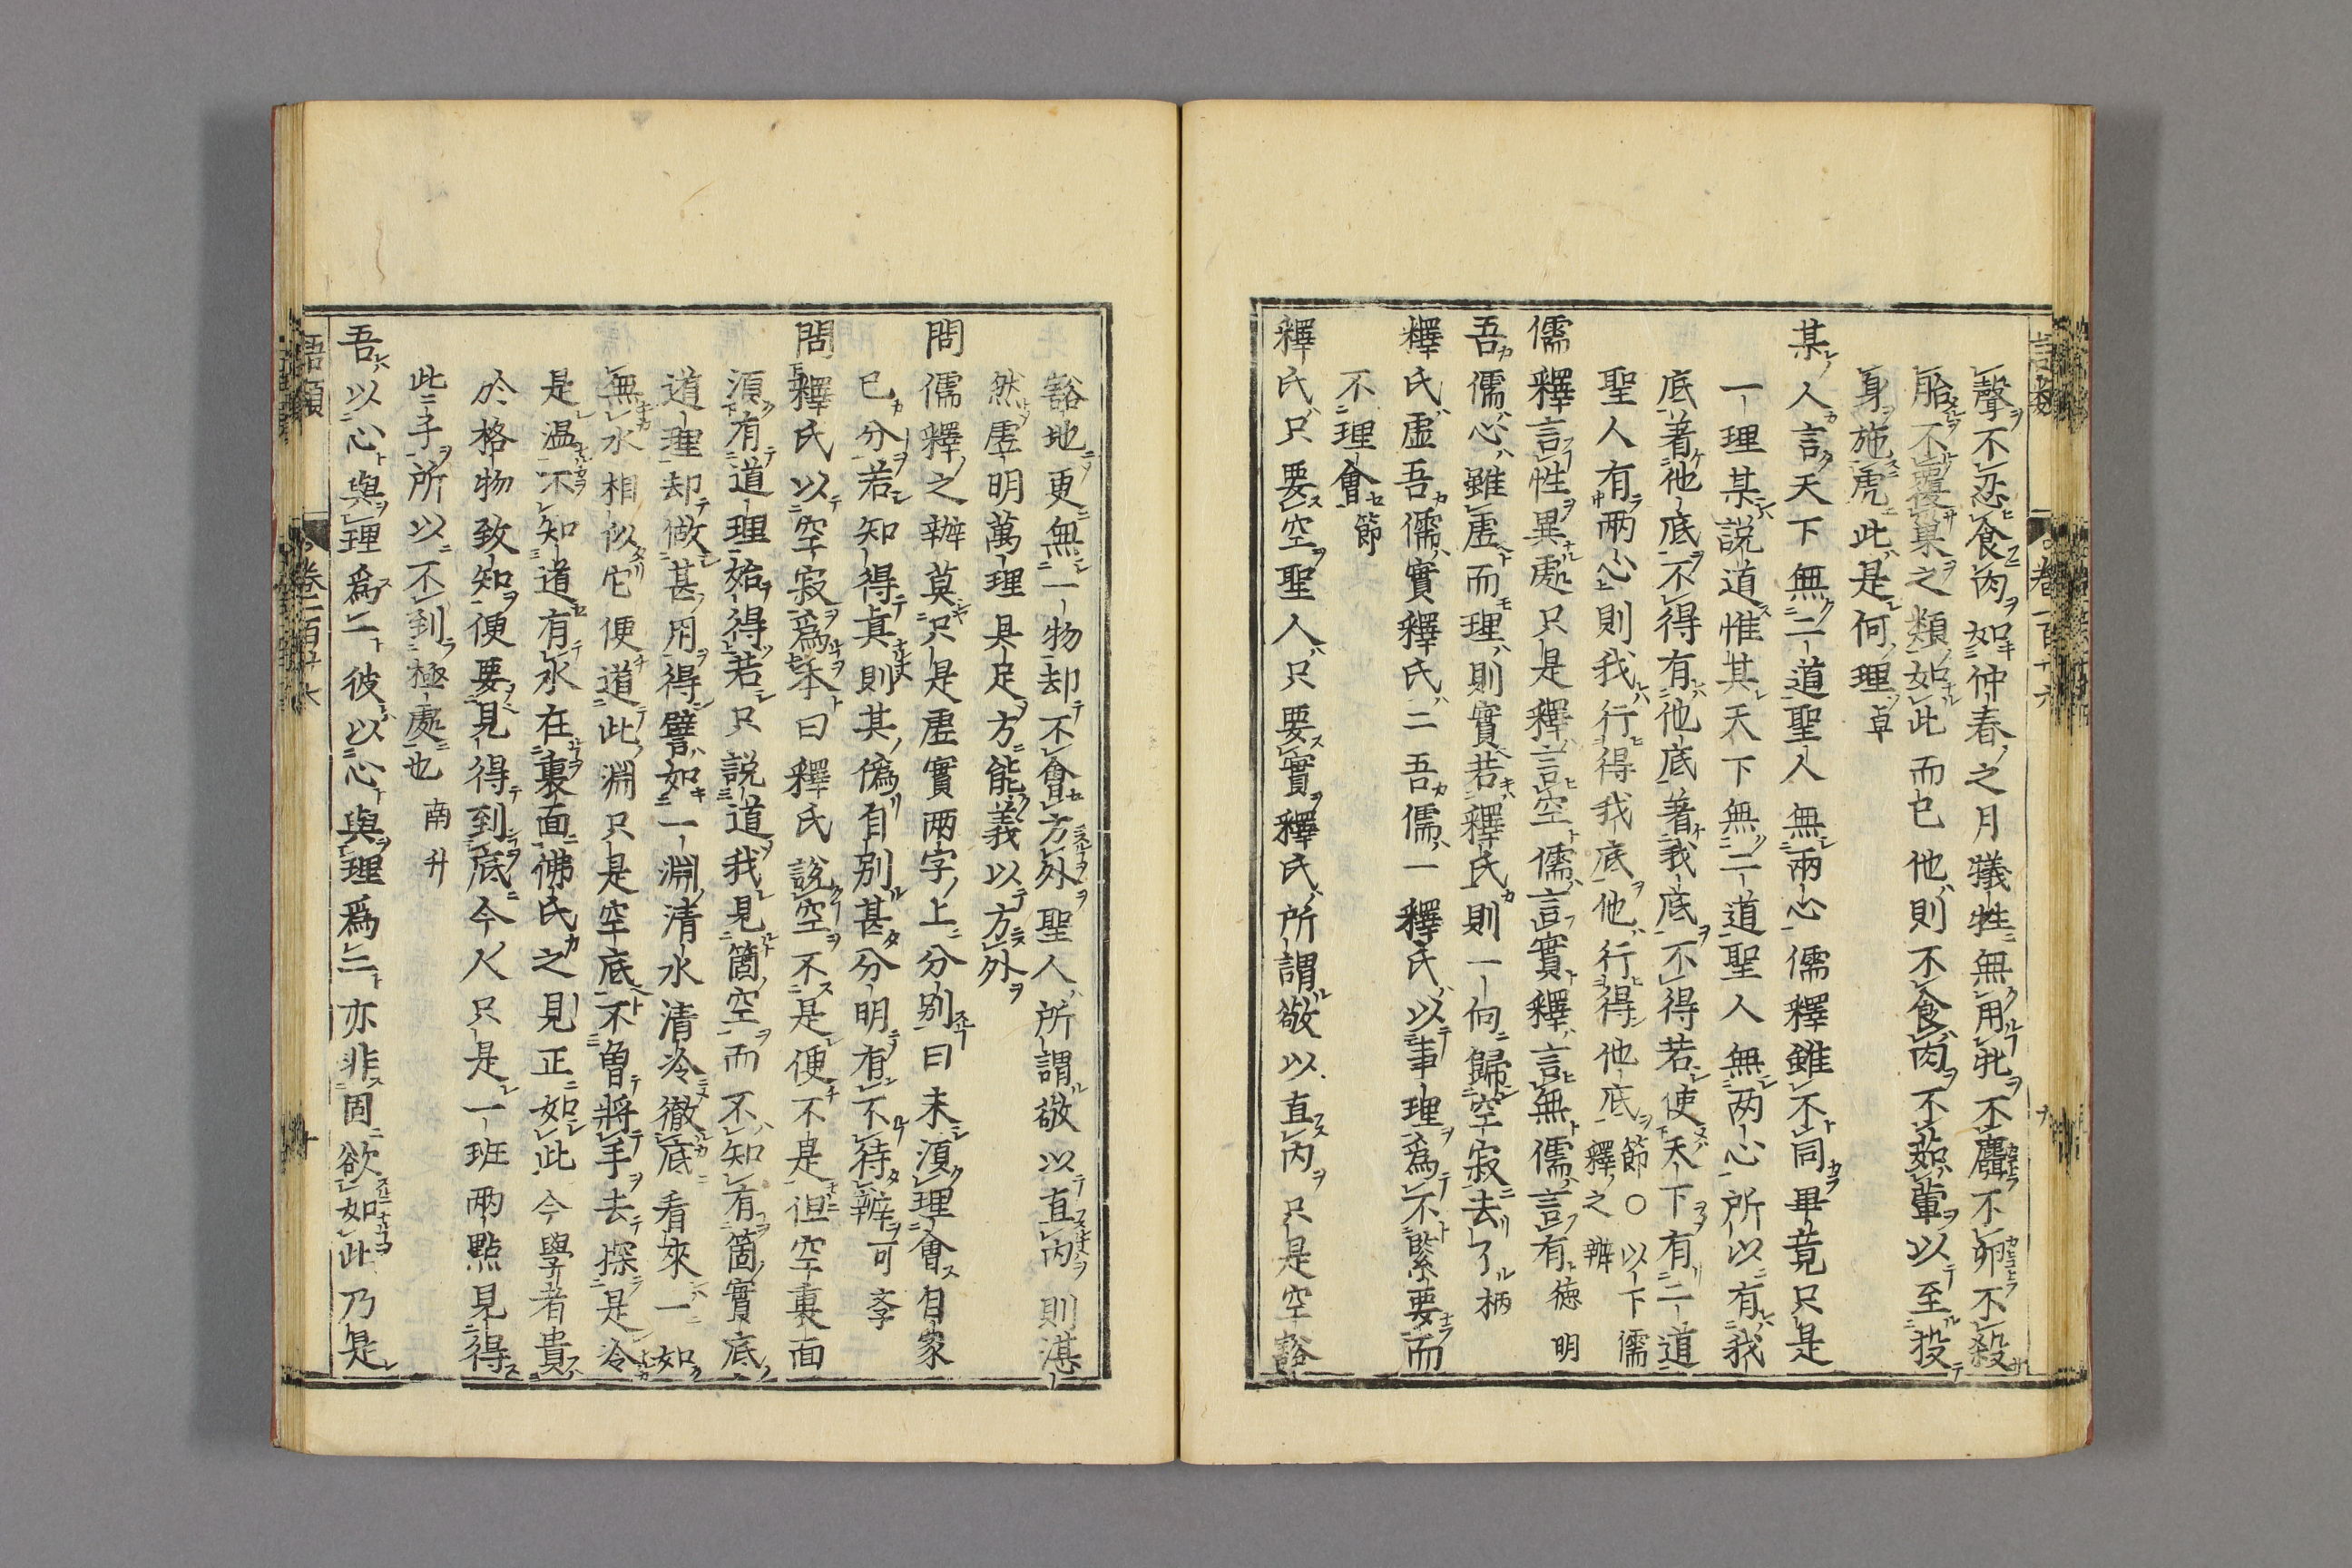 聲不忍食肉如仲春之月犧牲無用牝不麛不卵不殺
胎不覆巢之類如此而已他則不食肉不茹葷以至投
身施虎此是何理卓
某人言天下無二道聖人無兩心儒釋雖不同畢竟只是
一理某說道惟其天下無二道聖人無兩心所以有我
底著他底不得有他底著我底不得若使天下有二道
聖人有兩心則我行得我底他行得他底節○以下儒釋之辨
儒釋言性異處只是釋言空儒言實釋言無儒言有德明
吾儒心雖虛而理則實若釋氏則一向歸空寂去了柄
釋氏虛吾儒實釋氏二吾儒一釋氏以事理為不緊要而
不理會節
釋氏只要空聖人只要實釋氏所謂敬以直內只是空豁
豁地更無一物却不會方外聖人所謂敬以直內則湛
然虛明萬理具足方能義以方外
問儒釋之辨莫只是虛實兩字上分別曰未須理會自家
已分若知得真則其偽自別甚分明有不待辨可孝
問釋氏以空寂爲本曰釋氏說空不是便不是但空裏面
須有道理始得若只說道我見箇空而不知有箇實底
道理却做甚用得譬如一淵清水清冷徹底看來一如
無水相似它便道此淵只是空底不曾將手去探是冷
是温不知道有水在裏面佛氏之見正如此今學者貴
於格物致知便要見得到底今人只是一班兩點見得
此子所以不到極處也南升
吾以心與理爲一彼以心與理爲二亦非固欲如此乃是
語類
卷一百廿六
十